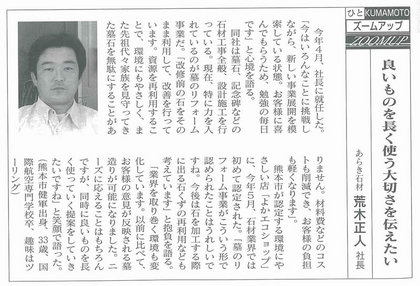 ひと KUMAMOTO
ズームアップ
ZOOMUP
良いものを長く使う大切さを伝えたい
あらき石材 荒木正人 社長
今年４月、社長に就任した。
「今はいろんなことに挑戦し
ながら、新しい事業展開を模
索している状態。お客様に喜
んでもらうため、勉強の毎日
です」と心境を語る。
同社は墓石、記念碑などの
石材工事全般、設計施工を行
っている。現在、特に力を入
れているのが墓のリフォーム
事業だ。「改修前の石をその
まま利用して、改善を行って
います。資源を再利用するこ
とで、環境にもやさしく、ま
た先祖代々家族を見守ってき
た墓石を無駄にすることがあ
りません。材料費などのコス
トも削減でき、お客様の負担
も軽くなります」。
熊本市が認定する環境にや
さしい店「よかエコショップ」
に、今年５月、石材業界では
初めて認定された。「墓のリ
フォーム事業がこういう形で
認められたことはうれしいで
すね。今後は石を加工する際
に出る石くずの再利用なども
考えています」と抱負を語る。
「業界を取り巻く環境も変
化しています。以前に比べて、
お客様の意思が反映される墓
造りが可能になりました。ニ
ーズに応えることはもちろん
ですが、同時に良いものを長
く使っていく提案をしていき
たいですね」と笑顔で語った。
（熊本市健軍出身、33歳、国
際航空専門学校卒、趣味はツ
ーリング）